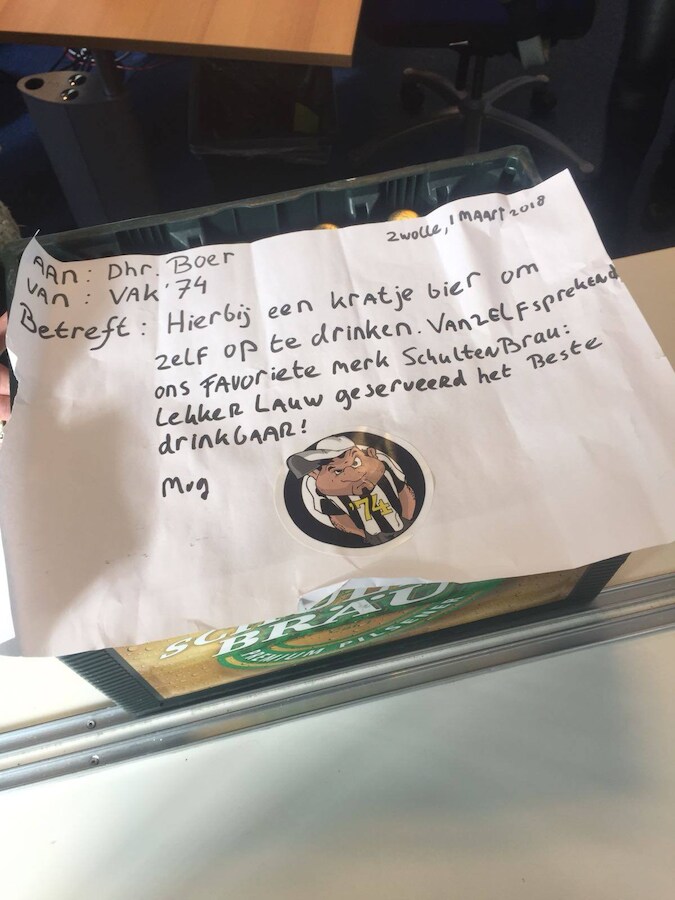 Zwolle, 1 MAART 2018
AAN : Dhr. Boer
VAN : VAK '74
Betreft : Hierbij een kratje bier om
zelf op te drinken. Vanzelfsprekend
ons FAVoriete merk SchultenBrau:
Lekker Lauw geserveerd het Beste
drinkbaar!
Mug
'74
BRÄU
PREMIUM PILSENER